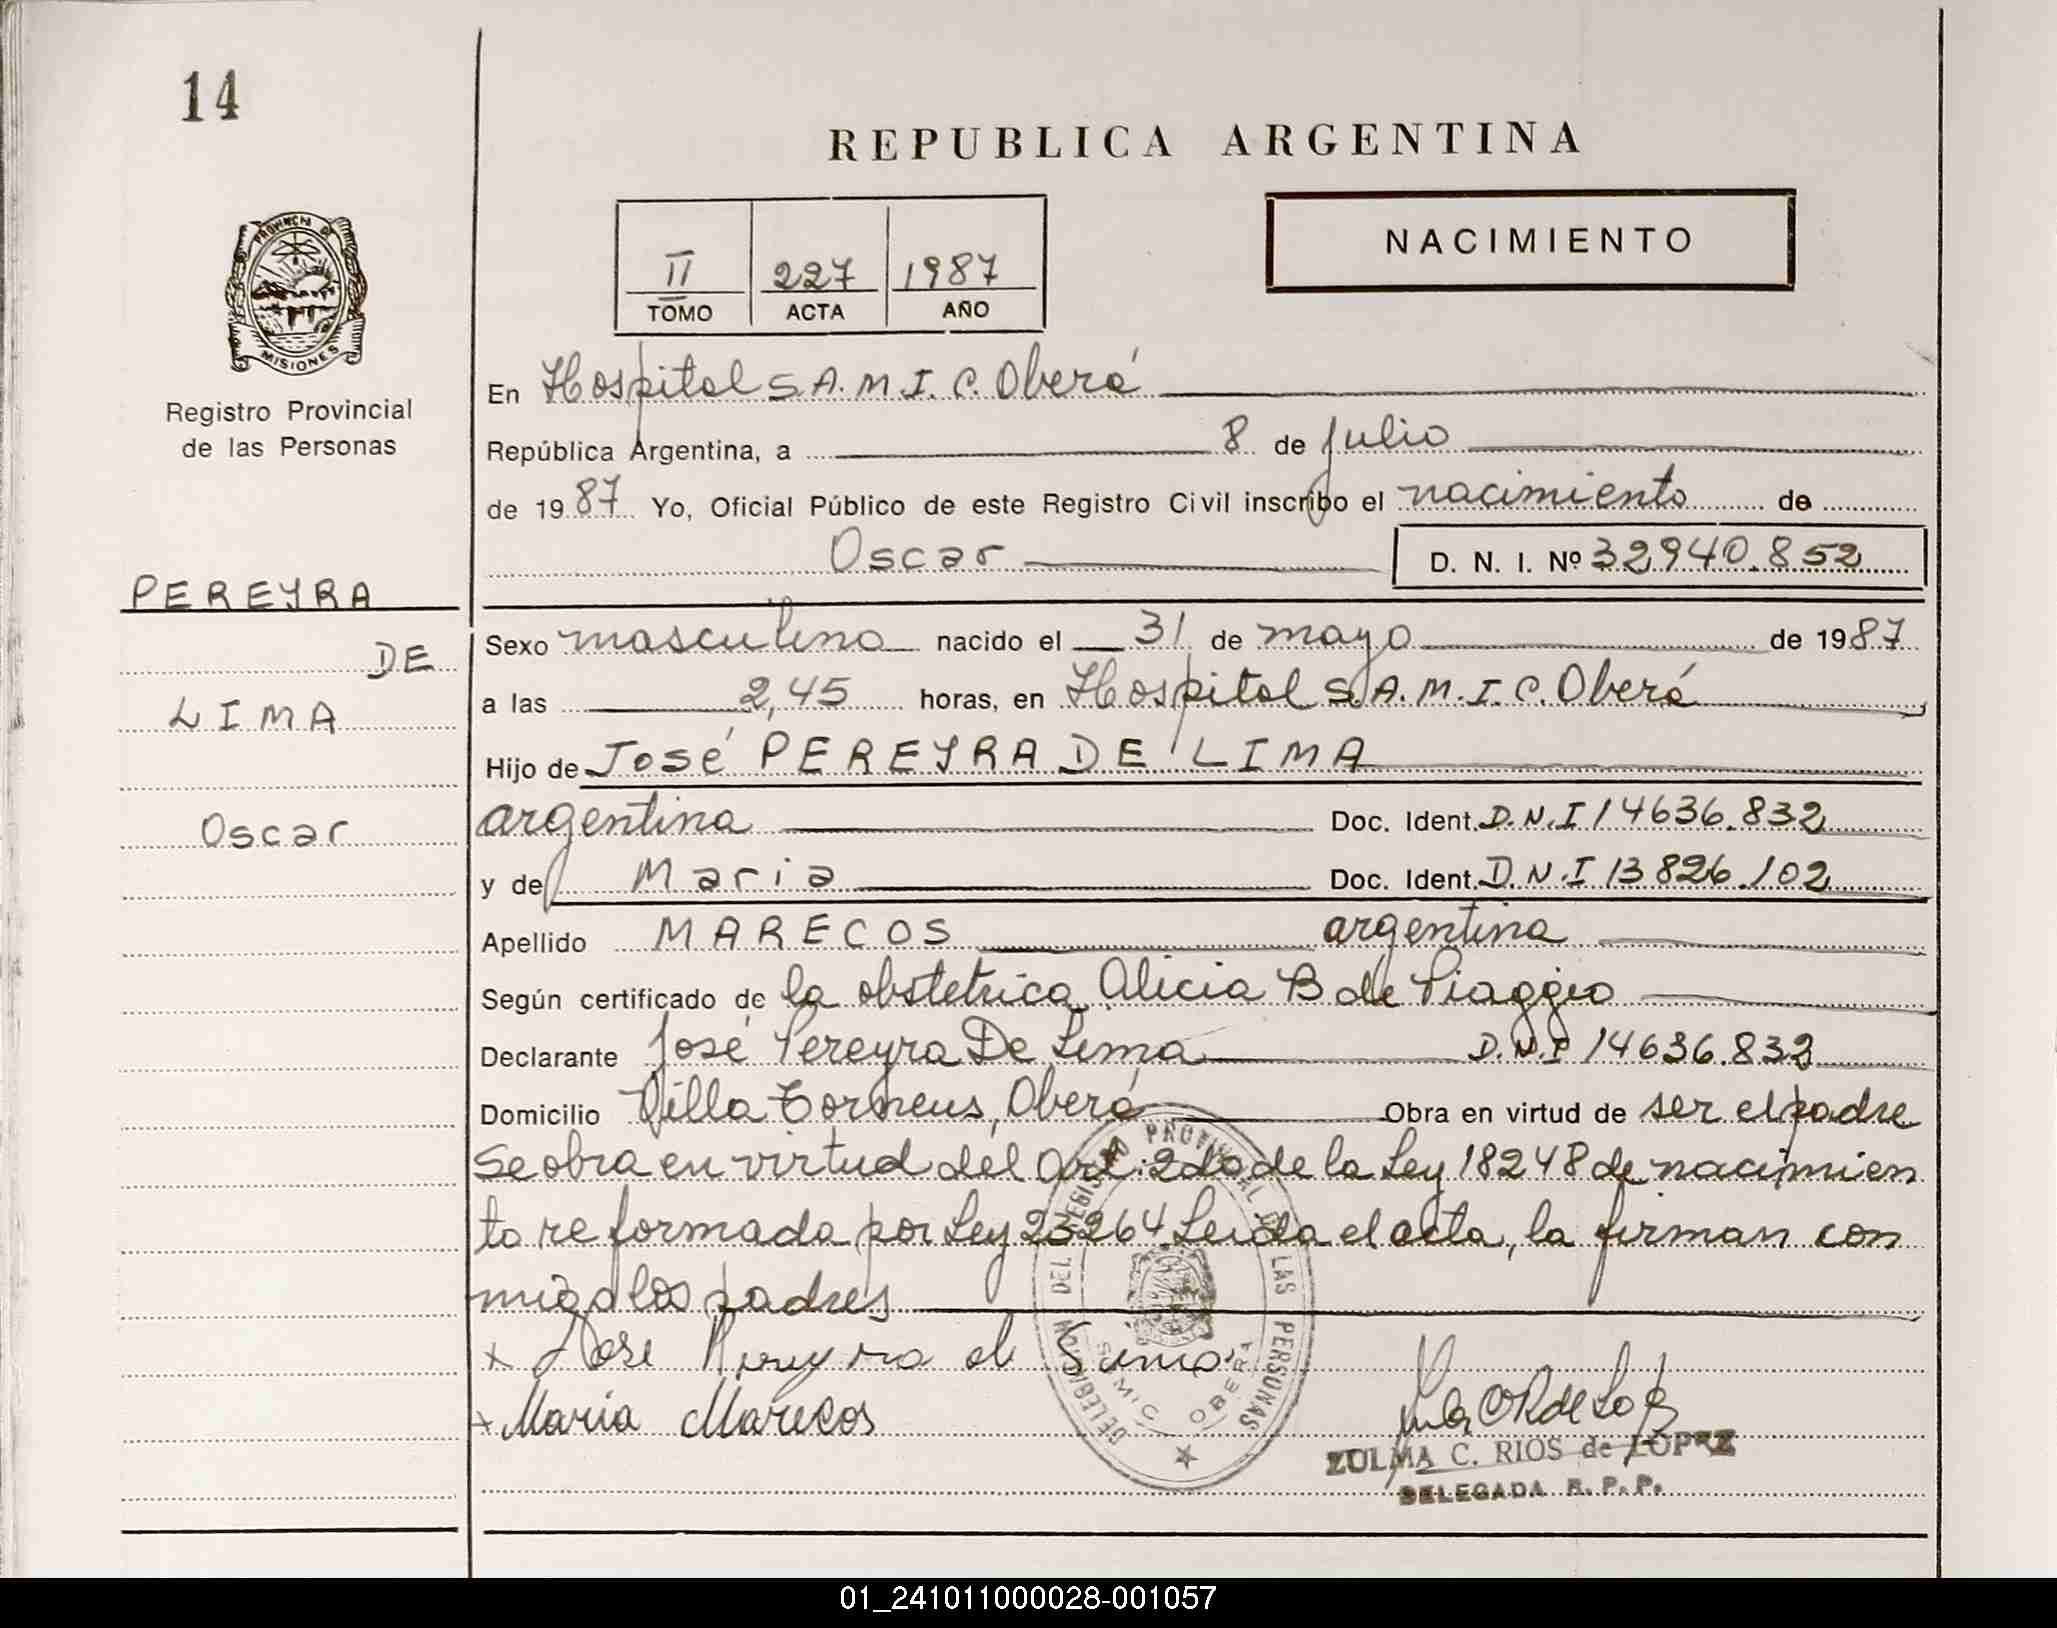 14
REPUBLICA ARGENTINA
NACIMIENTO
II 227 1987
TOMO ACTA AÑO
PROVINCIA DE
MISIONES
Registro Provincial
de las Personas
En Hospital S.A.M.I.C. Oberá
República Argentina, a 8 de julio
de 1987 Yo, Oficial Público de este Registro Civil inscribo el nacimiento de
Oscar D. N. I. Nº 32940.852
PEREYRA
DE
LIMA
Oscar
Sexo masculino nacido el 31 de mayo de 1987
a las 2,45 horas, en Hospital S.A.M.I.C. Oberá
Hijo de José PEREYRA DE LIMA
argentina Doc. Ident. D.N.I 14636.832
y de Maria Doc. Ident. D.N.I 13826.102
Apellido MARECOS argentina
Según certificado de la obstetrica Alicia B de Piaggio
Declarante José Pereyra De Lima D.N.I 14636.832
Domicilio Villa Oberá Obra en virtud de ser el padre
Se obra en virtud del Art: 2do de la Ley 18248 de nacimien
to reformada por Ley 23264 Leida el acta, la firman con
migo los padres
x Jose Pereyra d Lima
x Maria Marecos
DELEGACION DEL REGISTRO PROVINCIAL DE LAS PERSONAS
SAMIC OBERA
ZULMA C. RIOS de LOPEZ
DELEGADA R. P. P.
01_241011000028-001057